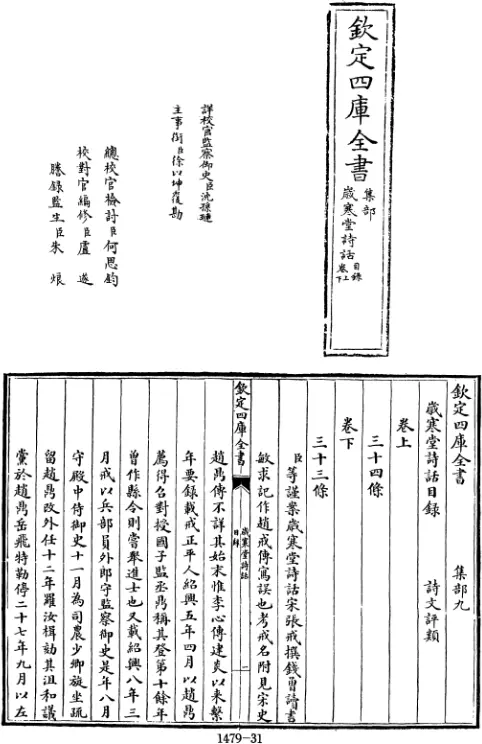 欽定四庫全書
集部
歲寒堂詩話
目錄
卷上下
詳校官監察御史臣沈孫璉
主事銜臣徐以坤覆勘
總校官檢討臣何思鈞
校對官編修臣盧遂
謄錄監生臣朱烺
欽定四庫全書 集部九
歲寒堂詩話目錄 詩文評類
卷上
三十四條
卷下
三十三條
臣等謹案歲寒堂詩話宋張戒撰錢曾讀書
敏求記作趙戒傳寫誤也考戒名附見宋史
欽定四庫全書
歲寒堂詩話
目錄
二
趙鼎傳不詳其始末惟李心傳建炎以來繫
年要錄載戒正平人紹興五年四月以趙鼎
薦得召對授國子監丞鼎稱其登第十餘年
曾作縣令則嘗舉進士也又載紹興八年三
月戒以兵部員外郎守監察御史是年八月
守殿中侍御史十一月為司農少卿旋坐疏
留趙鼎改外任十二年羅汝楫劾其沮和議
黨於趙鼎岳飛特勒停二十七年九月以左
1479-31